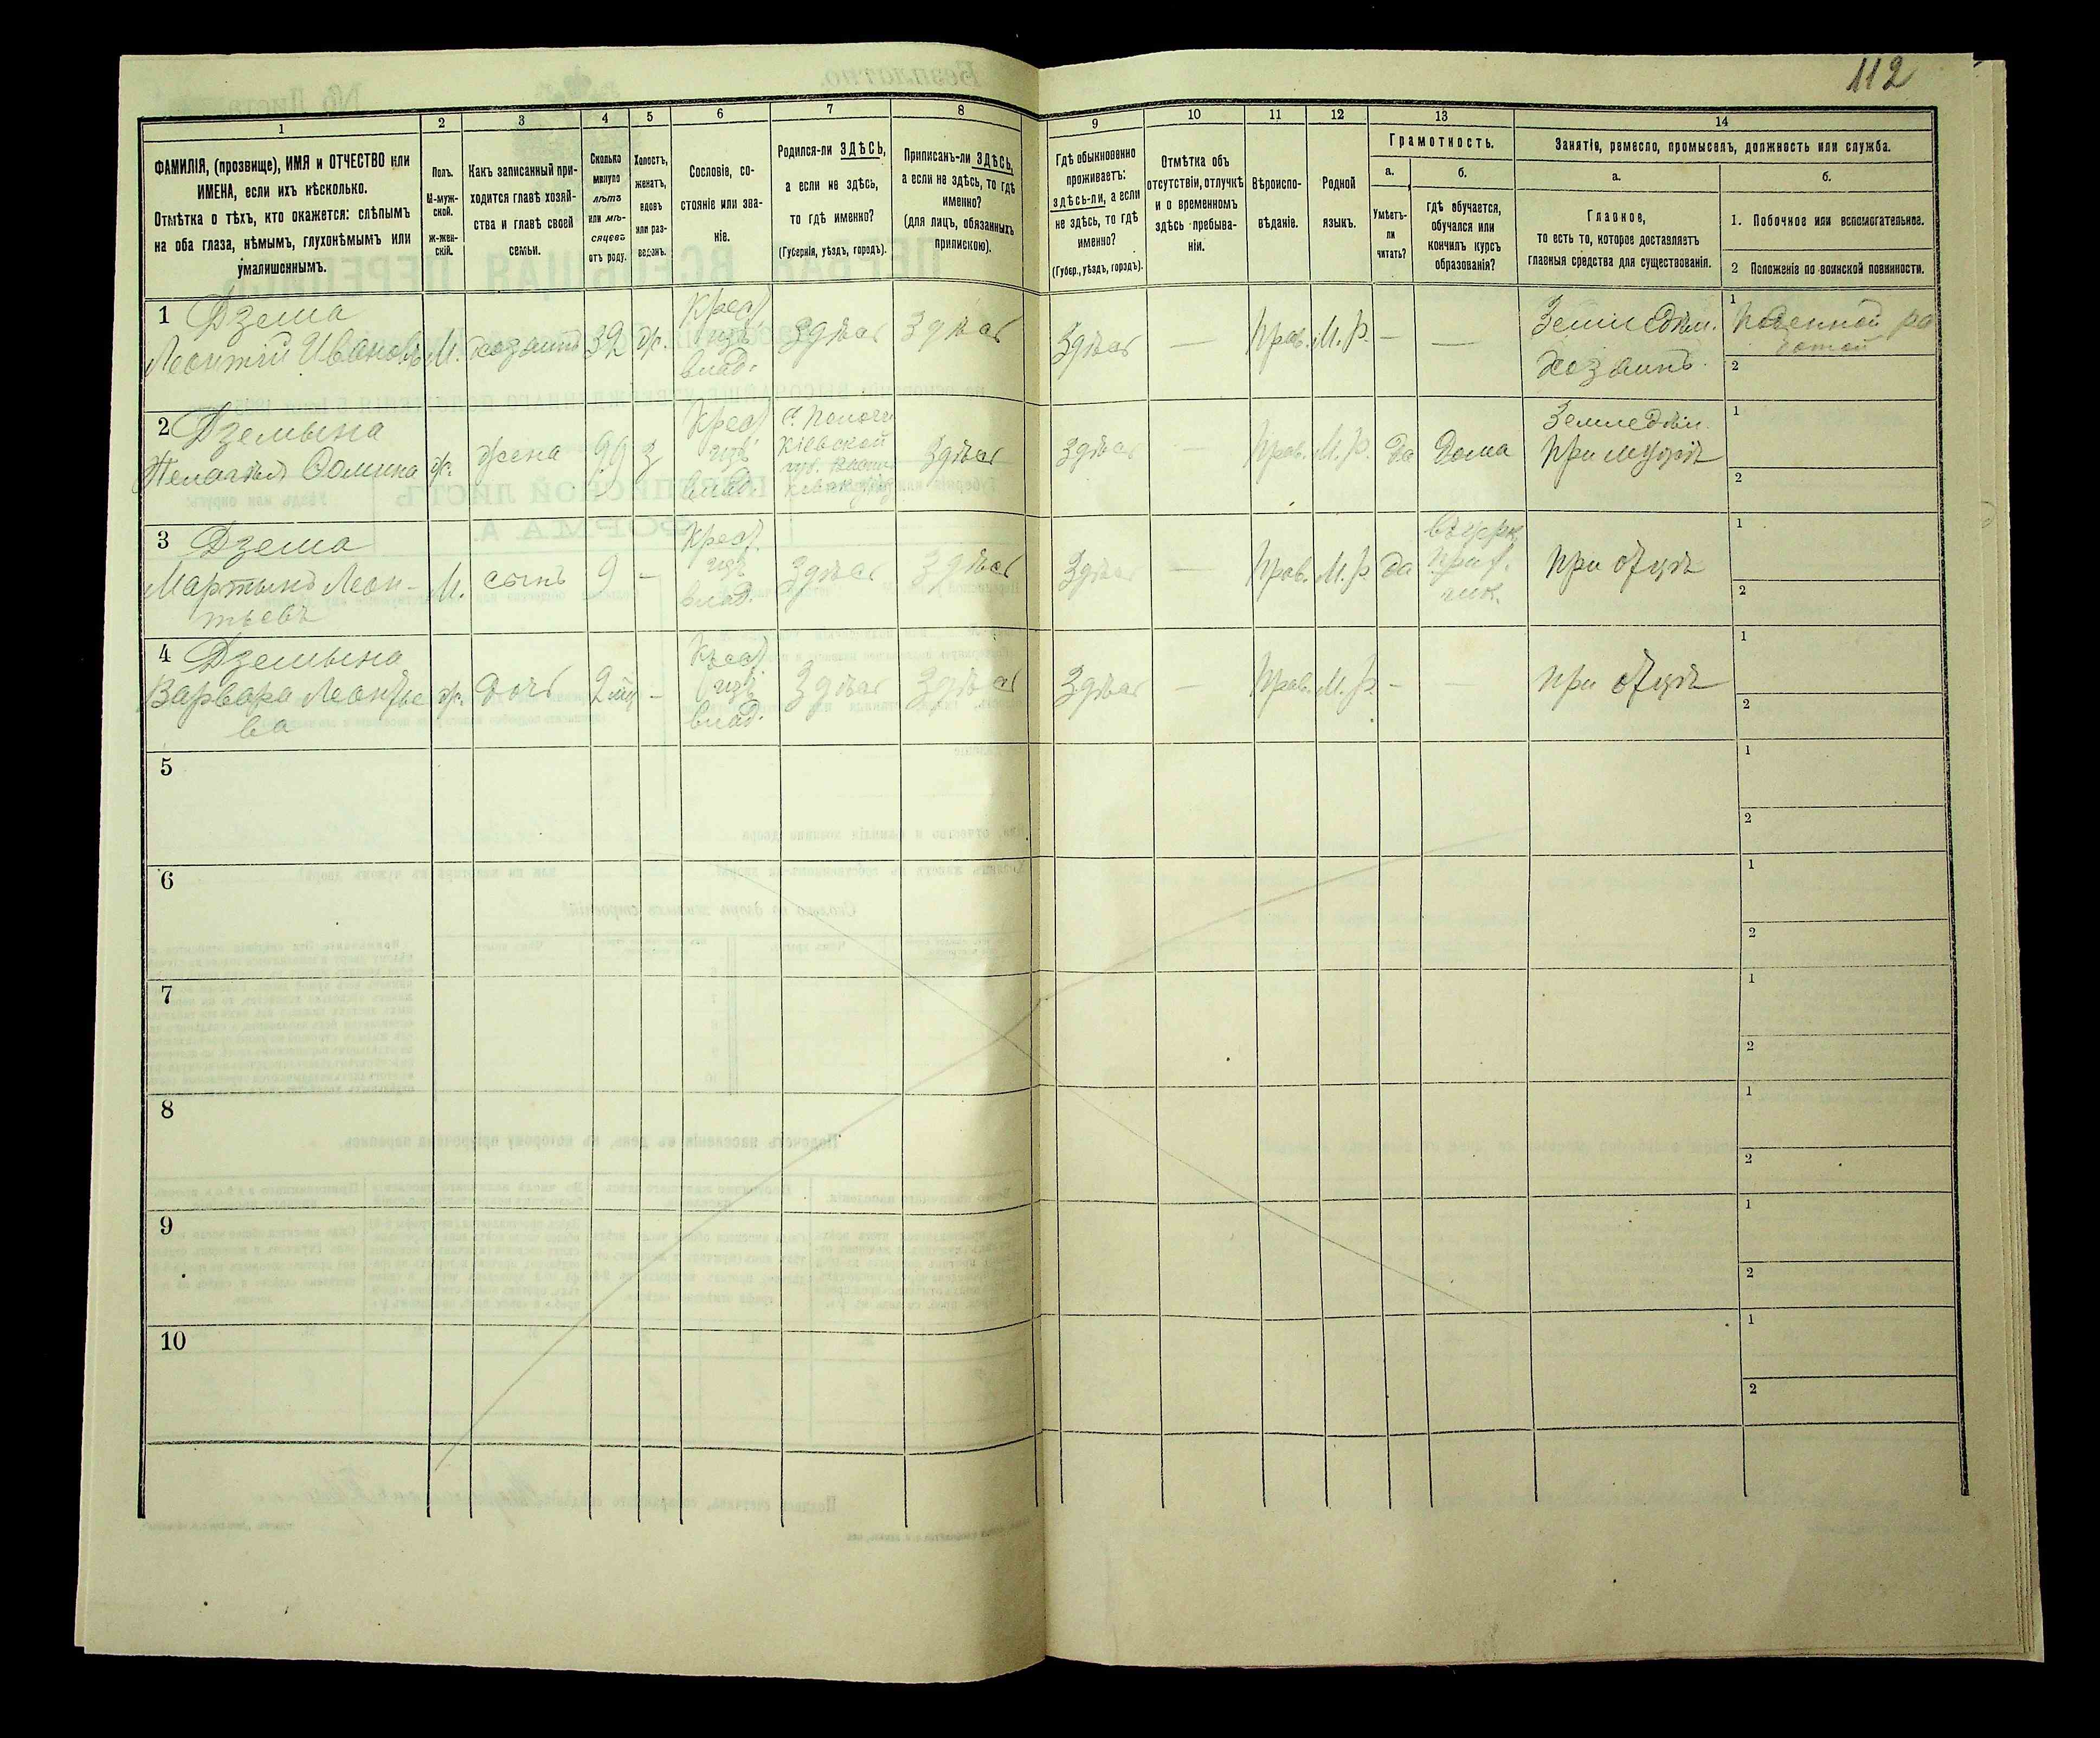 112
1
2
3
4
5
6
7
8
9
10
11
12
13
14
ФАМИЛІЯ, (прозвище), ИМЯ и ОТЧЕСТВО или
ИМЕНА, если ихъ нѣсколько.
Отмѣтка о тѣхъ, кто окажется: слѣпымъ
на оба глаза, нѣмымъ, глухонѣмымъ или
умалишеннымъ.
Полъ.
М-муж-
ской.
Ж-жен-
скій.
Какъ записанный при-
ходится главѣ хозяй-
ства и главѣ своей
семьи.
Сколько
минуло
лѣтъ
или мѣ-
сяцевъ
отъ роду.
Холостъ,
женатъ,
вдовъ
или раз-
веденъ.
Сословіе, со-
стояніе или зва-
ніе.
Родился-ли ЗДѢСЬ,
а если не здѣсь,
то гдѣ именно?
(Губернія, уѣздъ, городъ).
Приписанъ-ли ЗДѢСЬ,
а если не здѣсь, то гдѣ
именно?
(для лицъ, обязанныхъ
припискою).
Гдѣ обыкновенно
проживаетъ:
здѣсь-ли, а если
не здѣсь, то гдѣ
именно?
(Губер., уѣздъ, городъ).
Отмѣтка объ
отсутствіи, отлучкѣ
и о временномъ
здѣсь пребыва-
ніи.
Вѣроиспо-
вѣданіе.
Родной
языкъ.
Грамотность.
а.
Умѣетъ-
ли
читать?
б.
гдѣ обучается,
обучался или
кончилъ курсъ
образованія?
Занятіе, ремесло, промыселъ, должность или служба.
а.
Главное,
то есть то, которое доставляетъ
главныя средства для существованія.
б.
1. Побочное или вспомогательное.
2 Положеніе по воинской повинности.
1 Дзема
Леонтій Ивановъ
М.
хозяинъ
32
ж.
Крест
изъ
влад.
Здѣсь
Здѣсь
Здѣсь
—
Прав.
М. р.
—
—
Земледѣл.
хозяинъ
1 Поденной ра
ботой
2
2 Дземына
Пелагѣя
ж.
жена
з
Крест
изъ
влад.
Кіевской
губ.
Здѣсь
Здѣсь
—
Прав.
М. р.
да
дома
Земледѣл.
при мужѣ
1
2
3 Дзема
Мартынъ Леон-
тьевъ
М.
сынъ
9
-
Крест.
изъ
влад.
Здѣсь
Здѣсь
Здѣсь
—
Прав.
М. р.
да
при отцѣ
1
2
4 Дземына
Варвара Леонтье
ва
ж.
дочь
2 мц
-
Крест
изъ
влад.
Здѣсь
Здѣсь
Здѣсь
—
Прав.
М. р.
-
—
при отцѣ
1
2
5
1
2
6
1
2
7
1
2
8
1
2
9
1
2
10
1
2